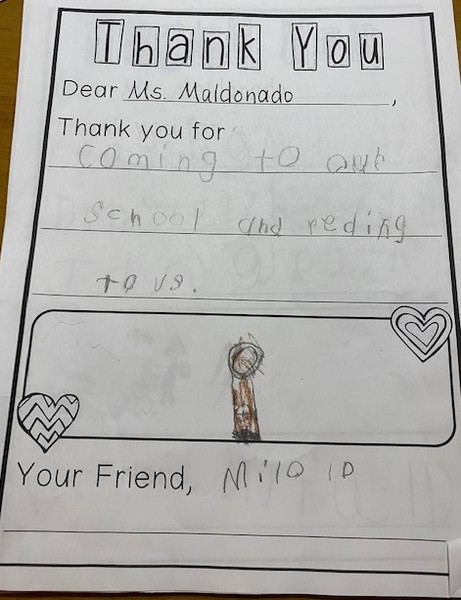 Thank You
Dear Ms. Maldonado,
Thank you for
coming to our
school and reding
to us.
Your Friend,